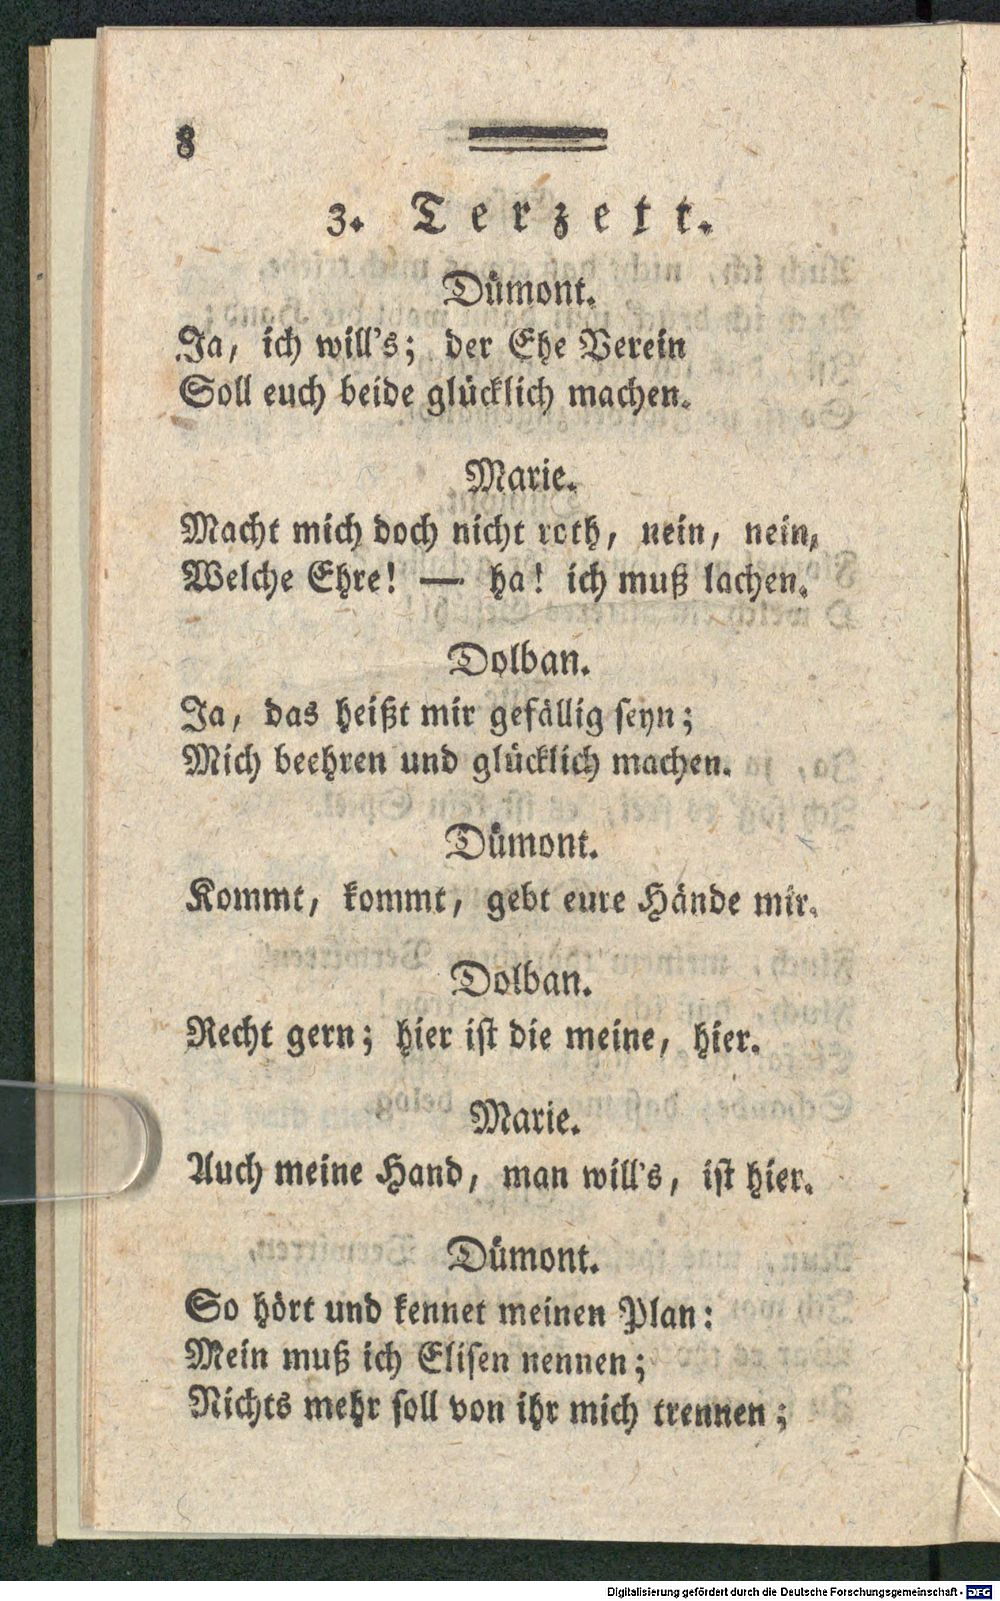 8
3. Terzett.
Dümont.
Ja, ich will's; der Ehe Verein
Soll euch beide glücklich machen.
Marie.
Macht mich doch nicht roth, nein, nein,
Welche Ehre! — ha! ich muß lachen.
Dolban.
Ja, das heißt mir gefällig seyn;
Mich beehren und glücklich machen.
Dümont.
Kommt, kommt, gebt eure Hände mir.
Dolban.
Recht gern; hier ist die meine, hier.
Marie.
Auch meine Hand, man will's, ist hier.
Dümont.
So hört und kennet meinen Plan:
Mein muß ich Elisen nennen;
Nichts mehr soll von ihr mich trennen;
Digitalisierung gefördert durch die Deutsche Forschungsgemeinschaft - DFG